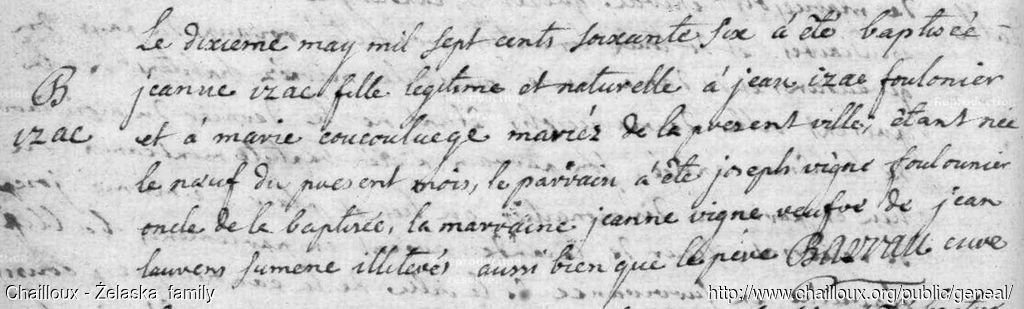 Le dixieme may mil sept cents soixante six á èté baptisèé
B
jeanne izac fille legitime et naturelle á jean izac foulonier
izac
et á marie coucouluege mariéz de la present ville, ètant nee
le nœuf du present mois, le parrain á èté joseph vigne foulounier
oncle de la baptisée, la marraine jeanne vigne veufve de jean
laurens sumene illiterés aussi bien que le pére Barrau cure
Chailloux - Żelaska family
http://www.chailloux.org/public/geneal/